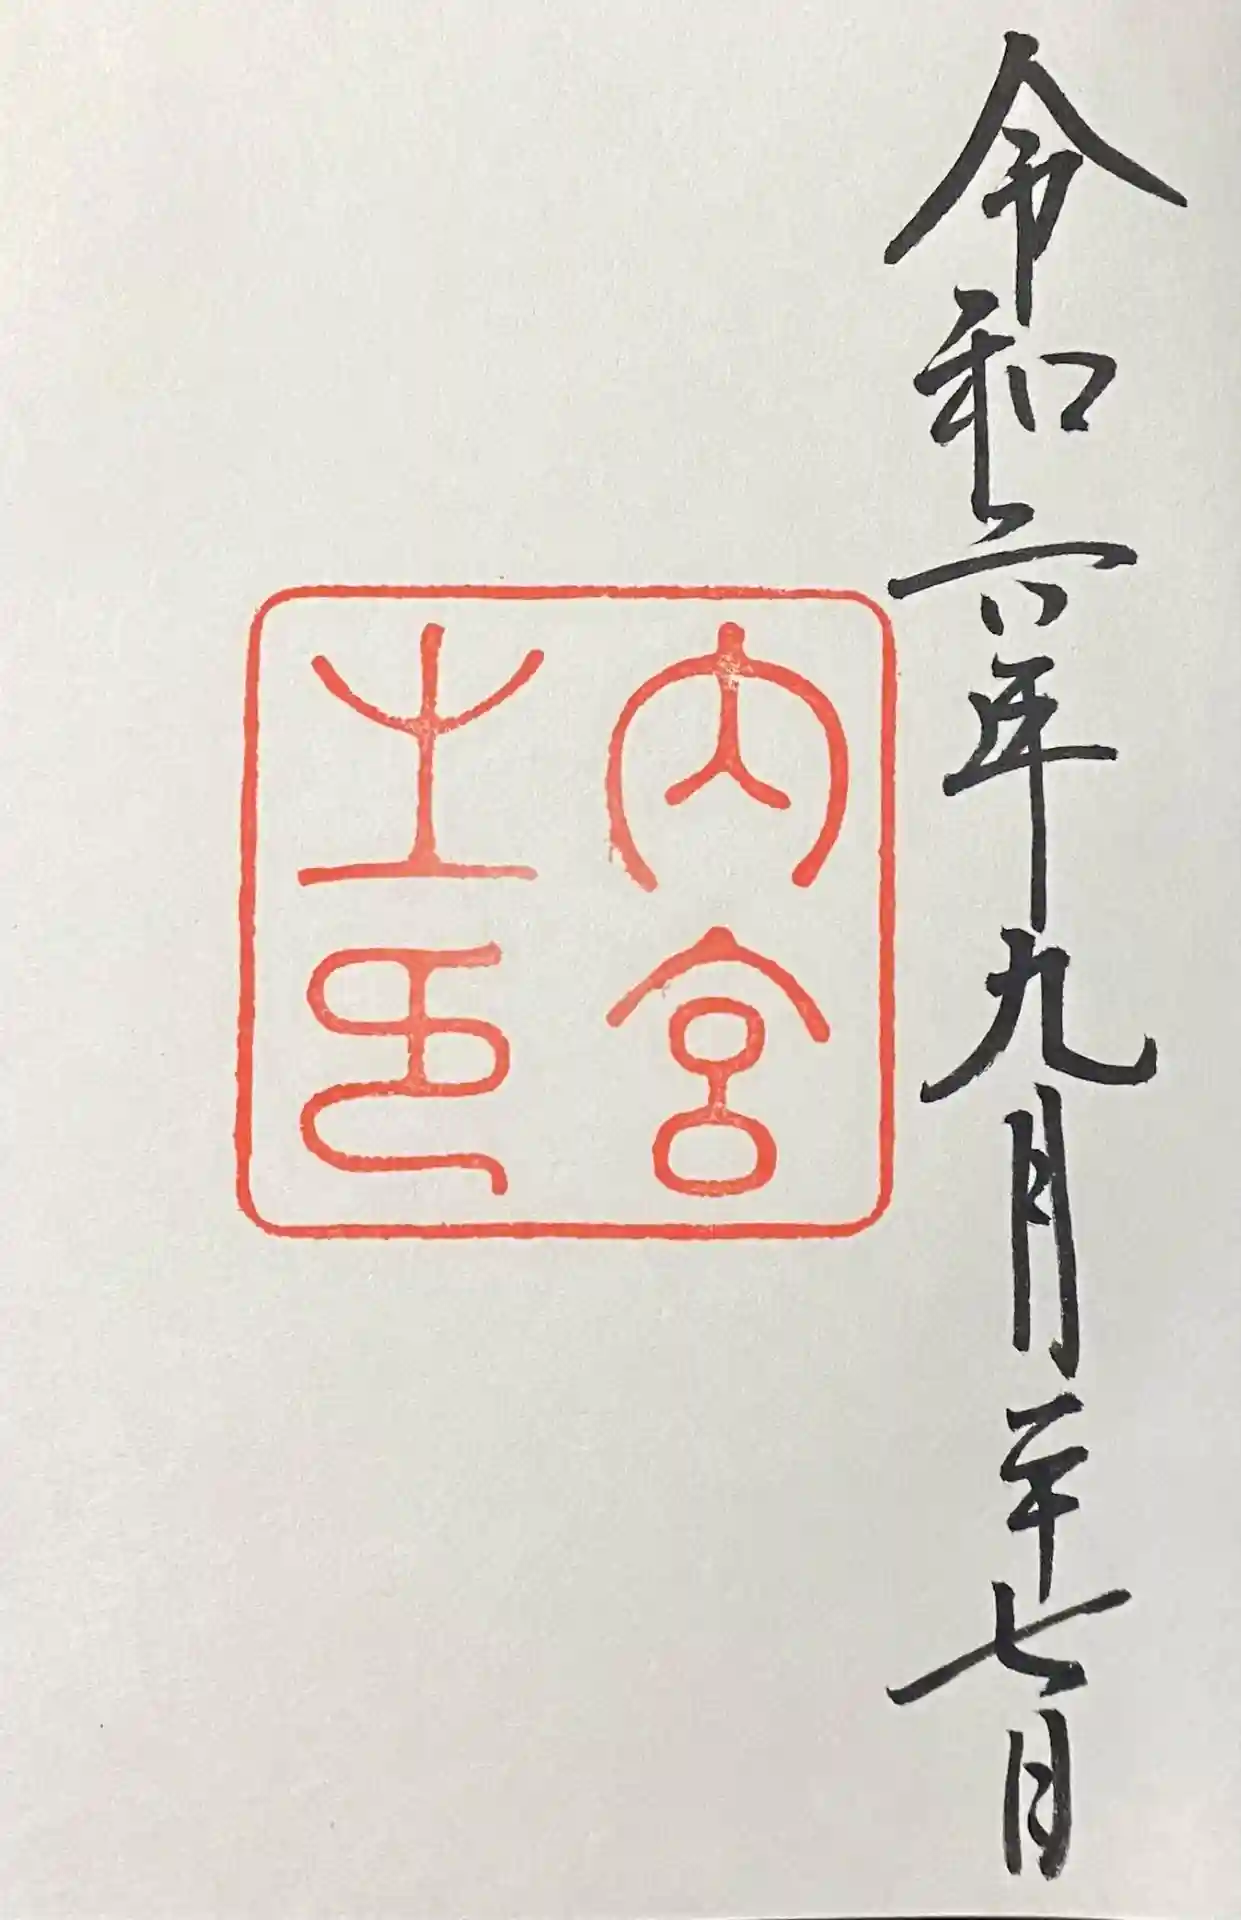 令和六年九月二十七日
内宮
之印